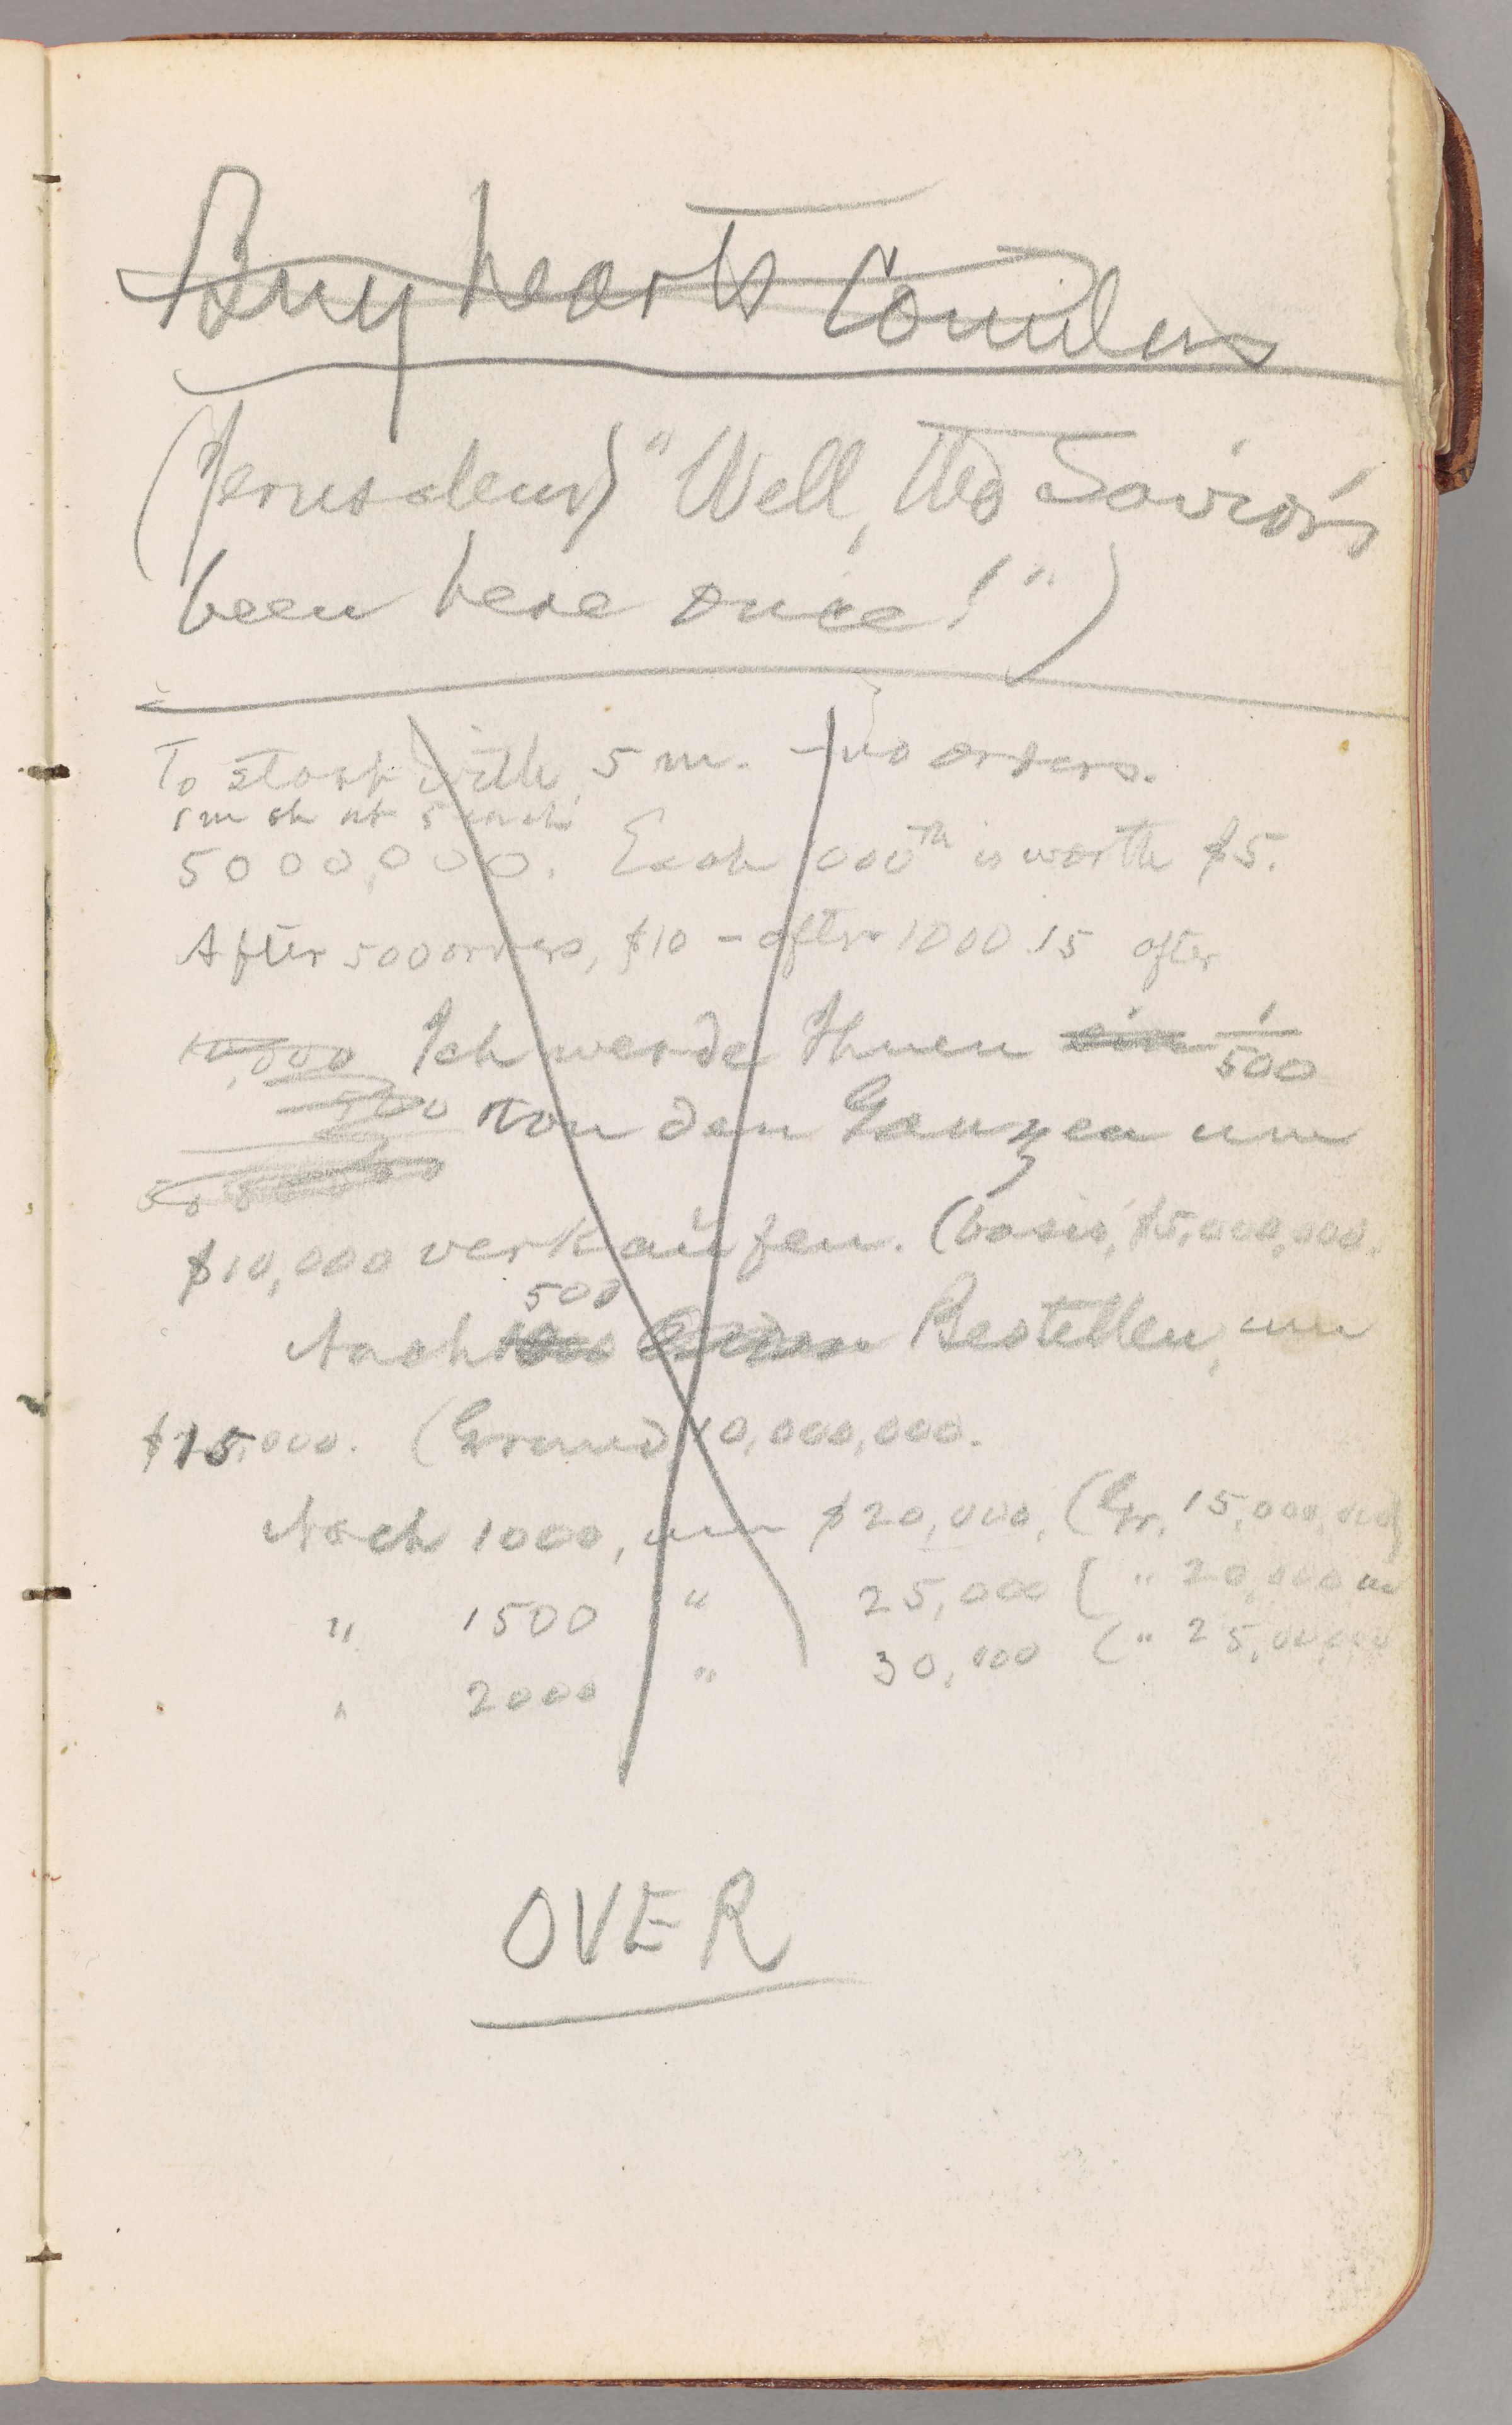 Buy hearts
(Jerusalem) "Well, the Savior's
been here once!")
To start with, 5 m. – no orders.
1 m sh at 5 each
5000,000. Each 000th is worth $5.
After 500 orders, $10 – after 1000 15 after
10,000 Ich werde Ihnen ein 1/500
500 von dem Ganzen um
$10,000 verkaüfen. (basis, $5,000,000.
500
Nach Bestellen, um
$15,000. (Grund, 10,000,000.
Nach 1000, um $20,000. (Gr. 15,000,000)
" 1500 " 25,000 ( " 20,000,000
" 2000 " 30,000 ( " 25,000,000
OVER